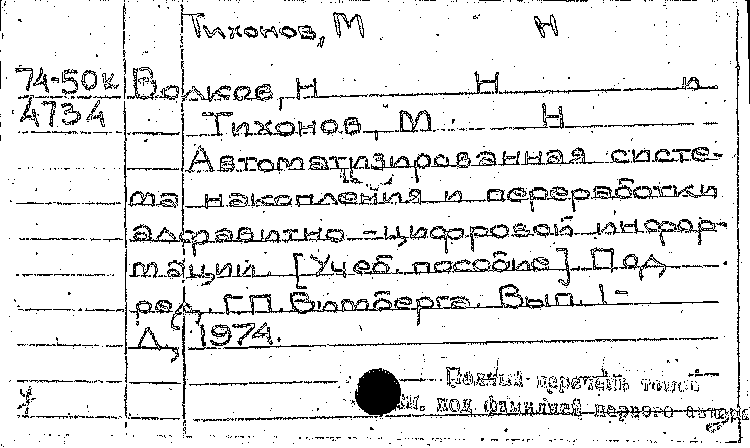 Тихонов, М Н
74-50к Волков, Н Н и
4734 Тихонов, М. Н
Автоматизированная систе-
ма накопления и переработки
алфавитно-цифровой инфор-
мации. [Учеб. пособие]. Под
ред. Г.П. Витберга. Вып. 1-
Л, 1974.
Полный перечень томов
см. под фамилией первого автора